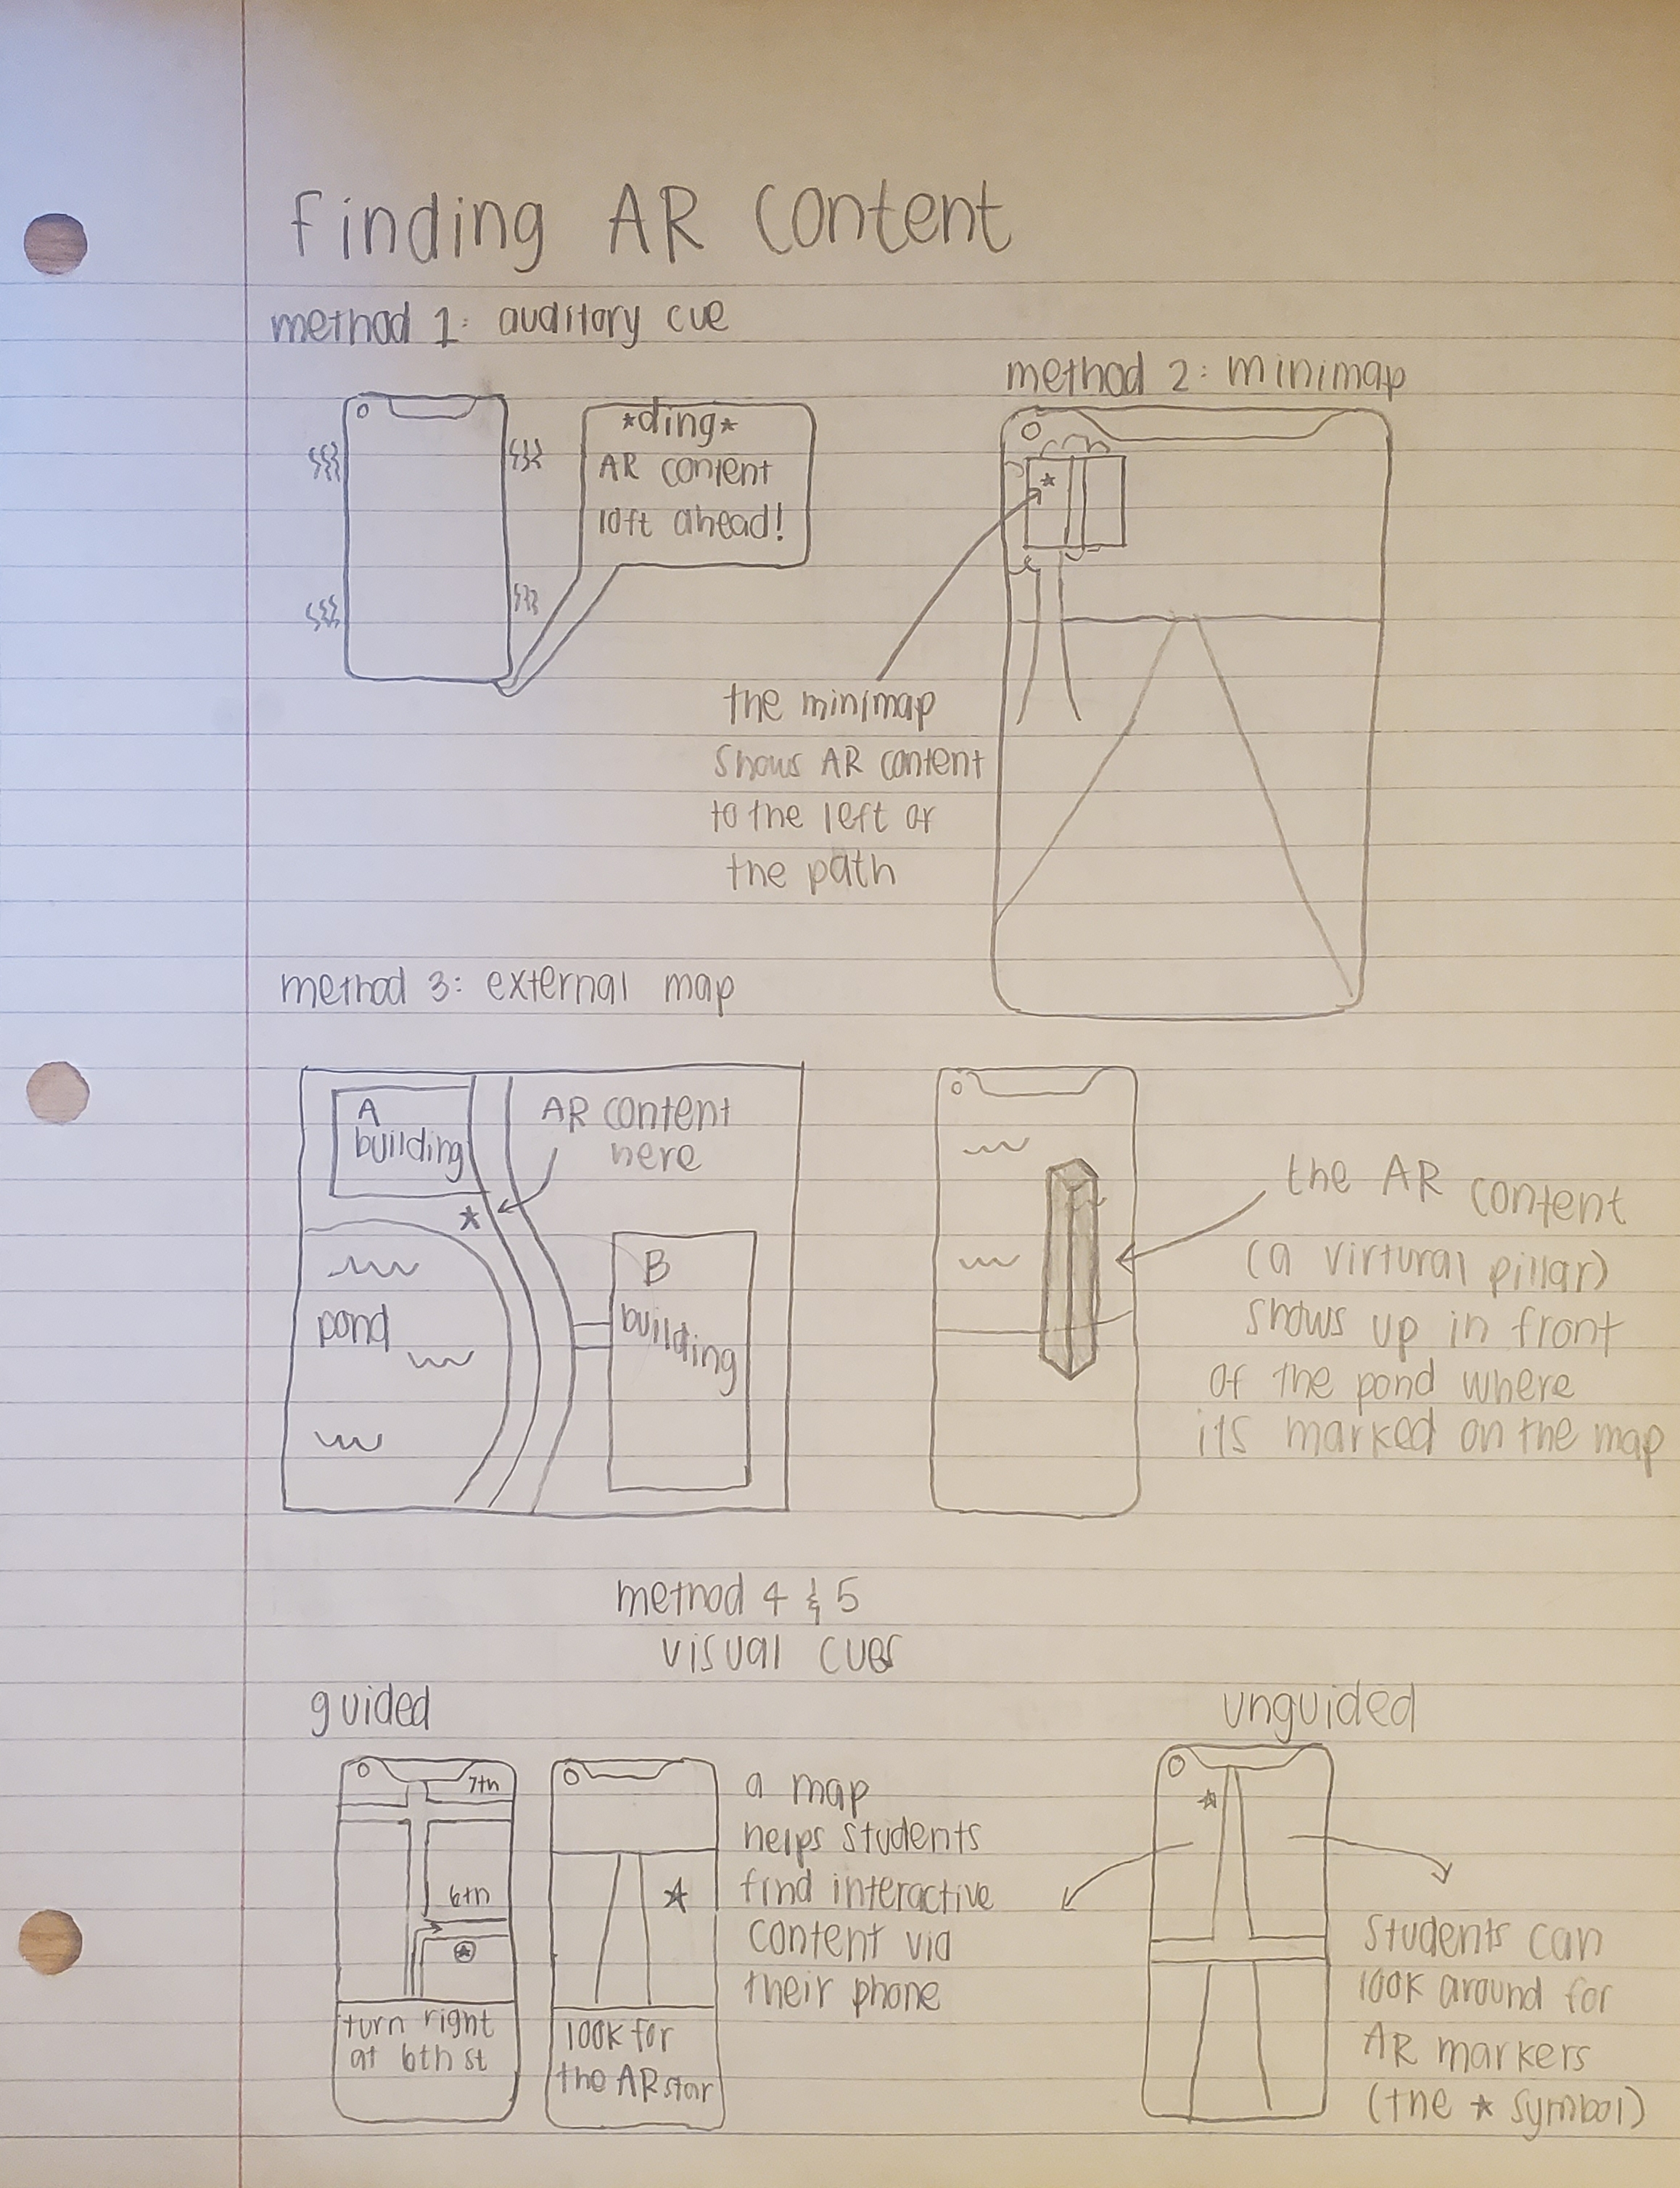 Finding AR Content
method 1: auditory cue
*ding*
AR content
10ft ahead!
method 2: minimap
the minimap
shows AR content
to the left of
the path
method 3: external map
A
building
AR content
here
pond
B
building
the AR content
(a virtural pillar)
shows up in front
of the pond where
its marked on the map
method 4 & 5
visual cues
guided
7th
6th
turn right
at 6th st
look for
the AR star
a map
helps students
find interactive
content via
their phone
unguided
students can
look around for
AR markers
(the ★ symbol)